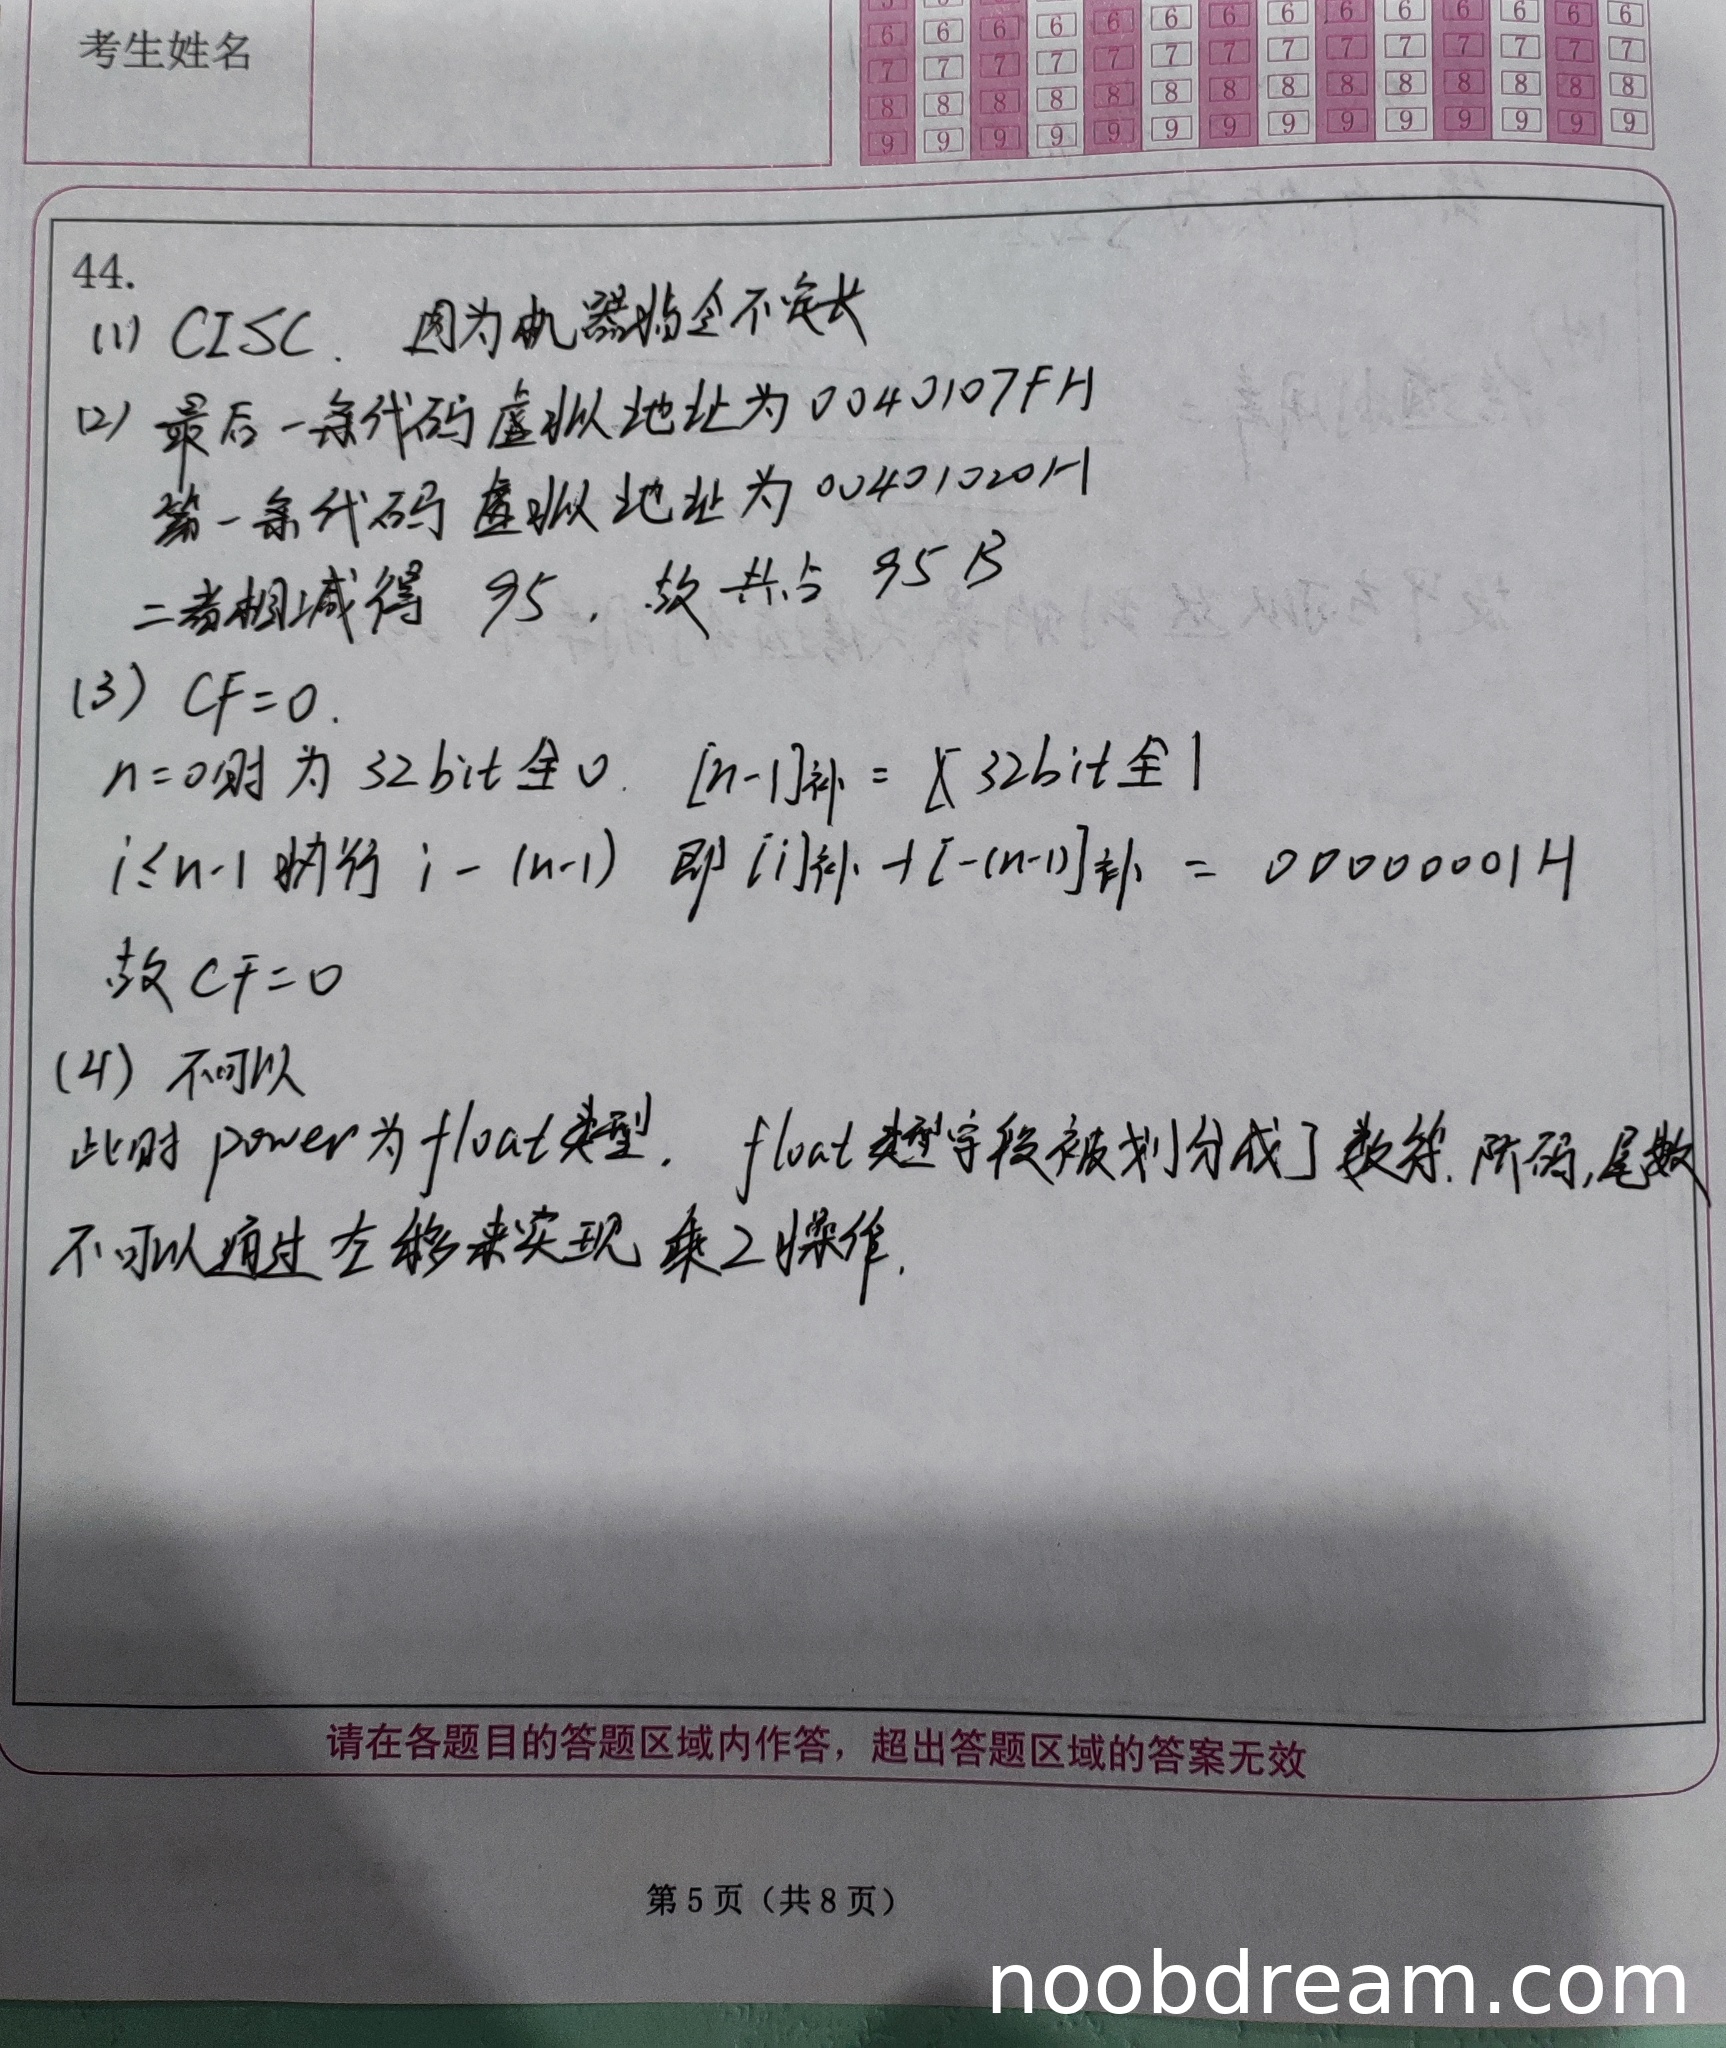 考生姓名
6 6 6 6 6 6 6 6 6 6 6 6 6 6
7 7 7 7 7 7 7 7 7 7 7 7 7 7
8 8 8 8 8 8 8 8 8 8 8 8 8 8
9 9 9 9 9 9 9 9 9 9 9 9 9 9
44.
(1) CISC. 因为机器指令不定长
(2) 最后一条代码虚拟地址为0040107FH
第一条代码虚拟地址为00401020H
二者相减得 95. 故共占 95B
(3) CF=0.
n=0时为32bit全0. [n-1]补 = 32bit全1
i≤n-1执行 i-(n-1) 即[i]补+[-(n-1)]补 = 00000001H
故CF=0
(4) 不可以
此时power为float类型. float类型字段被划分成了数符.阶码,尾数
不可以通过左移来实现乘2操作.
请在各题目的答题区域内作答，超出答题区域的答案无效
第5页（共8页）
noobdream.com